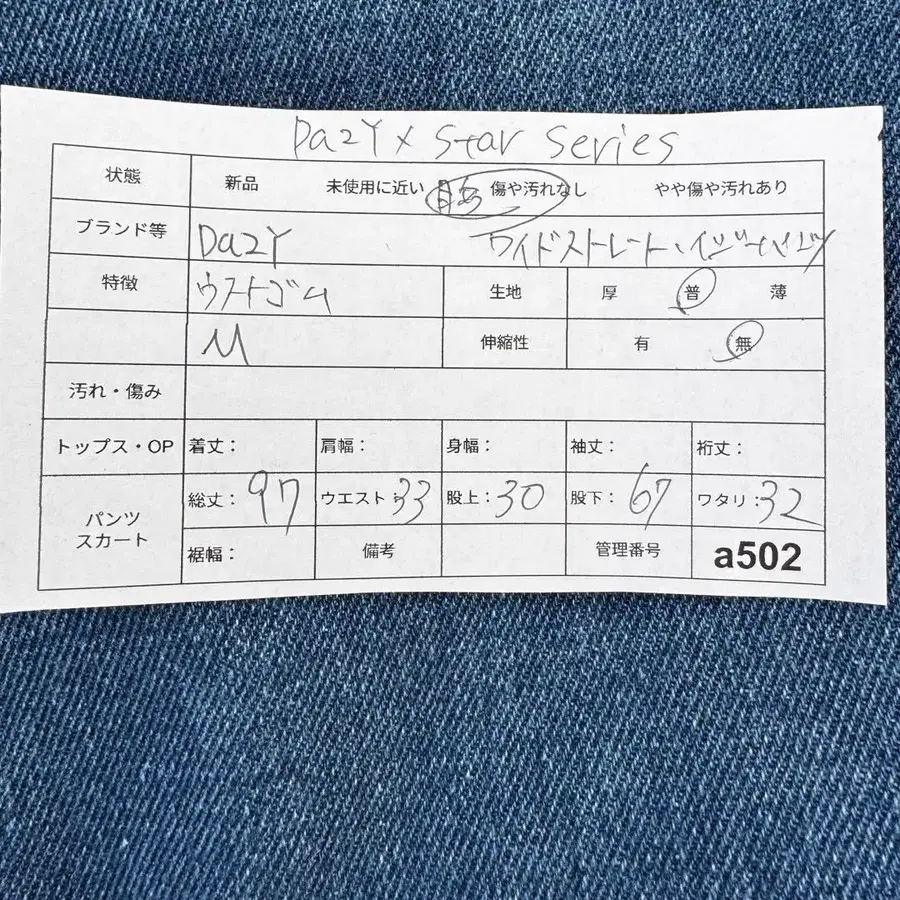 DaZY x Star Series
状態 新品 未使用に近い 目立 傷や汚れなし やや傷や汚れあり
ブランド等 DaZY ワイドストレート・イージーパンツ
特徴 ウエストゴム 生地 厚 普 薄
M 伸縮性 有 無
汚れ・傷み
トップス・OP 着丈: 肩幅: 身幅: 袖丈: 裄丈:
パンツ スカート 総丈: 97 ウエスト: 33 股上: 30 股下: 67 ワタリ: 32
裾幅: 備考 管理番号 a502